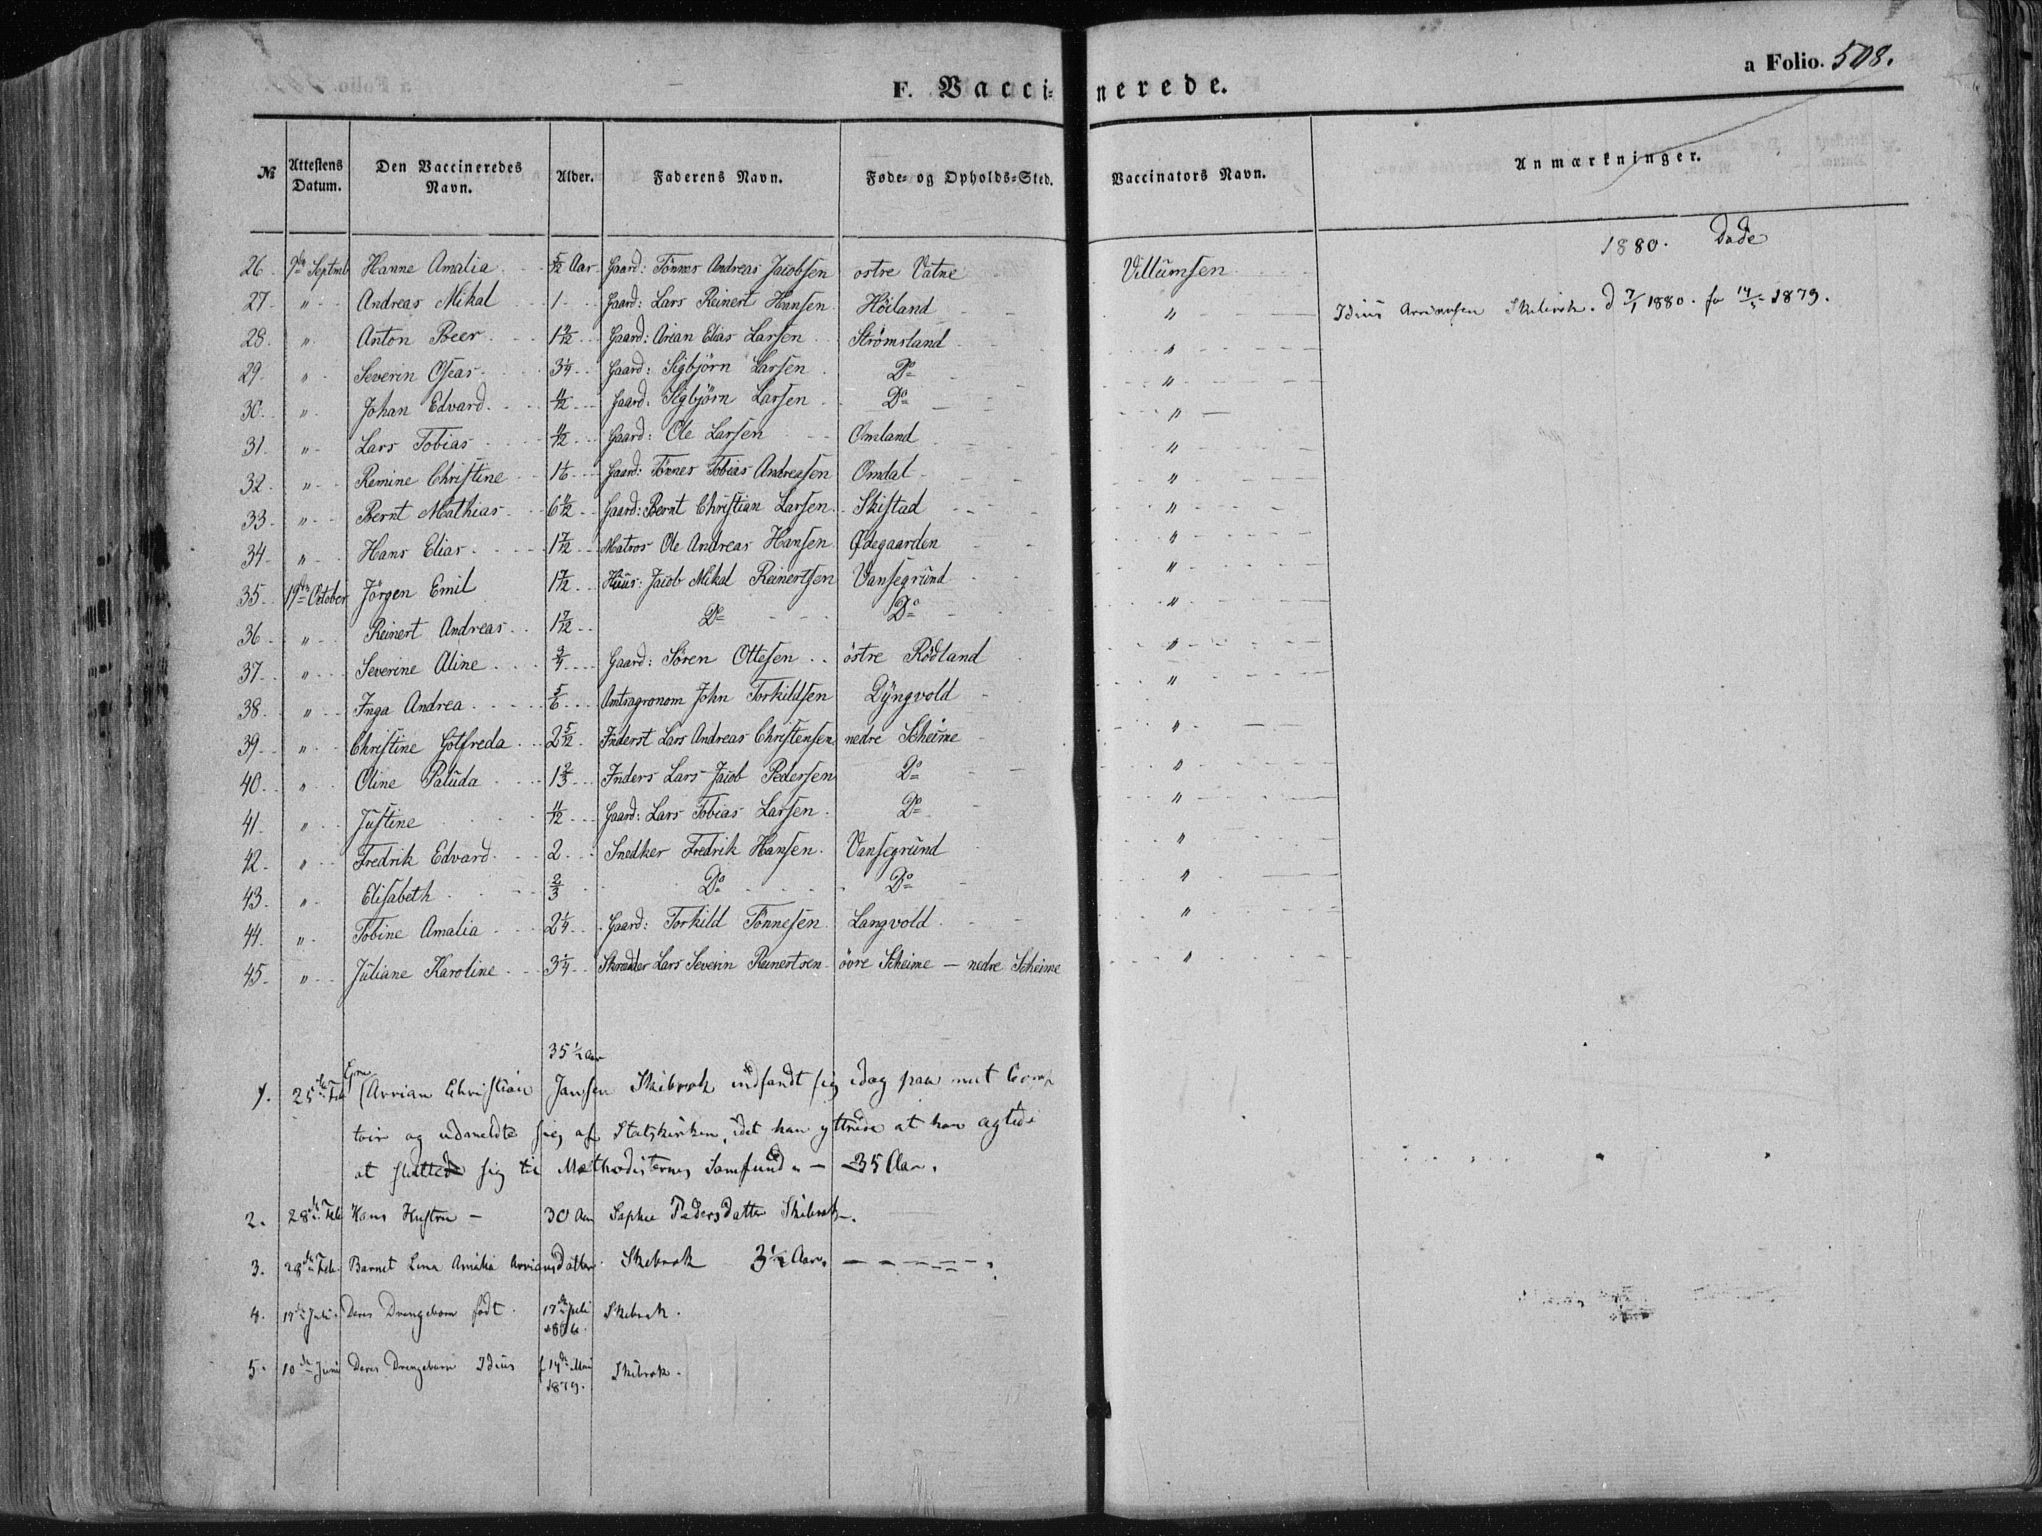 a Folio. 508.
F. Vacci- nerede.
№ Attestens Datum. Den Vaccineredes Navn. Alder. Faderens Navn. Føde- og Opholds-Sted. Vaccinators Navn. Anmærkninger.
1880. Døde
26 9de Septmb Hanne Amalia 5/12 Aar Gaard: Tönnes Andreas Jacobsen ostre Vatne Villumsen
27 " Andreas Mikal 1 Gaard: Lars Reinert Hansen Höiland "
Idius Arriansen Skibrok. d 7/1 1880. fø 14/5 1879.
28 " Anton Peer 1 4/12 Gaard: Arian Elias Larsen Strømsland "
29 " Severin Oseas 3 1/4 Gaard: Sigbjörn Larsen Do "
30 " Johan Edvard 4/12 Gaard: Sigbjörn Larsen Do "
31 " Lars Tobias 4/12 Gaard: Ole Larsen Omland "
32 " Remine Christine 1 1/6 Gaard: Tönnes Tobias Andreasen Omdal "
33 " Bernt Mathias 6 4/12 Gaard: Bernt Christian Larsen Skistad "
34 " Hans Elias 1 7/12 Matros Ole Andreas Hansen Ødegaarden "
35 19de October Jörgen Emil 1 7/12 Huus: Jacob Mikal Reinertsen Vansegrund "
36 " Reinert Andreas 1 7/12 Do Do "
37 " Severine Aline 3/4 Gaard: Sören Ottesen östre Rödland "
38 " Inga Andrea 5/6 Amtsagronom John Torkildsen Dyngvold "
39 " Christine Gotfreda 2 5/12 Inderst Lars Andreas Christensen nedre Scheime "
40 " Oline Paluda 1 2/3 Inders Lars Jacob Pedersen Do "
41 " Justine 4/12 Gaard: Lars Tobias Larsen Do "
42 " Fredrik Edvard 2 Snedker Fredrik Hansen Vansegrund "
43 " Elisabeth 2/3 Do Do "
44 " Tobine Amalia 2 1/4 Gaard: Torkild Tönnesen Langvold "
45 " Juliane Karoline 3 1/4 Skrædder Lars Severin Reinertsen övre Scheime — nedre Scheime "
35 1/2 Aar
1. 25de Feb Arrian Christian Jansen Skibrok indfandt sig idag paa mit Comp
toir og udmeldte sig af Statskirken, idet han yttrede at han agtede
at slutte sig til Methodisternes Samfund. — 35 Aar.
2. 28de Feb Hans Hustru — 30 Aar Sophie Pedersdatter Skibrok.
3. 28de Feb. Barnet Lina Amalia Arriansdatter Skibrok 3 1/2 Aar.
4. 17de Juli Deres Drengebarn født 17de Juli Skibrok.
5. 10de Juni Deres Drengebarn Idius f 14de Mai 1879. Skibrok.